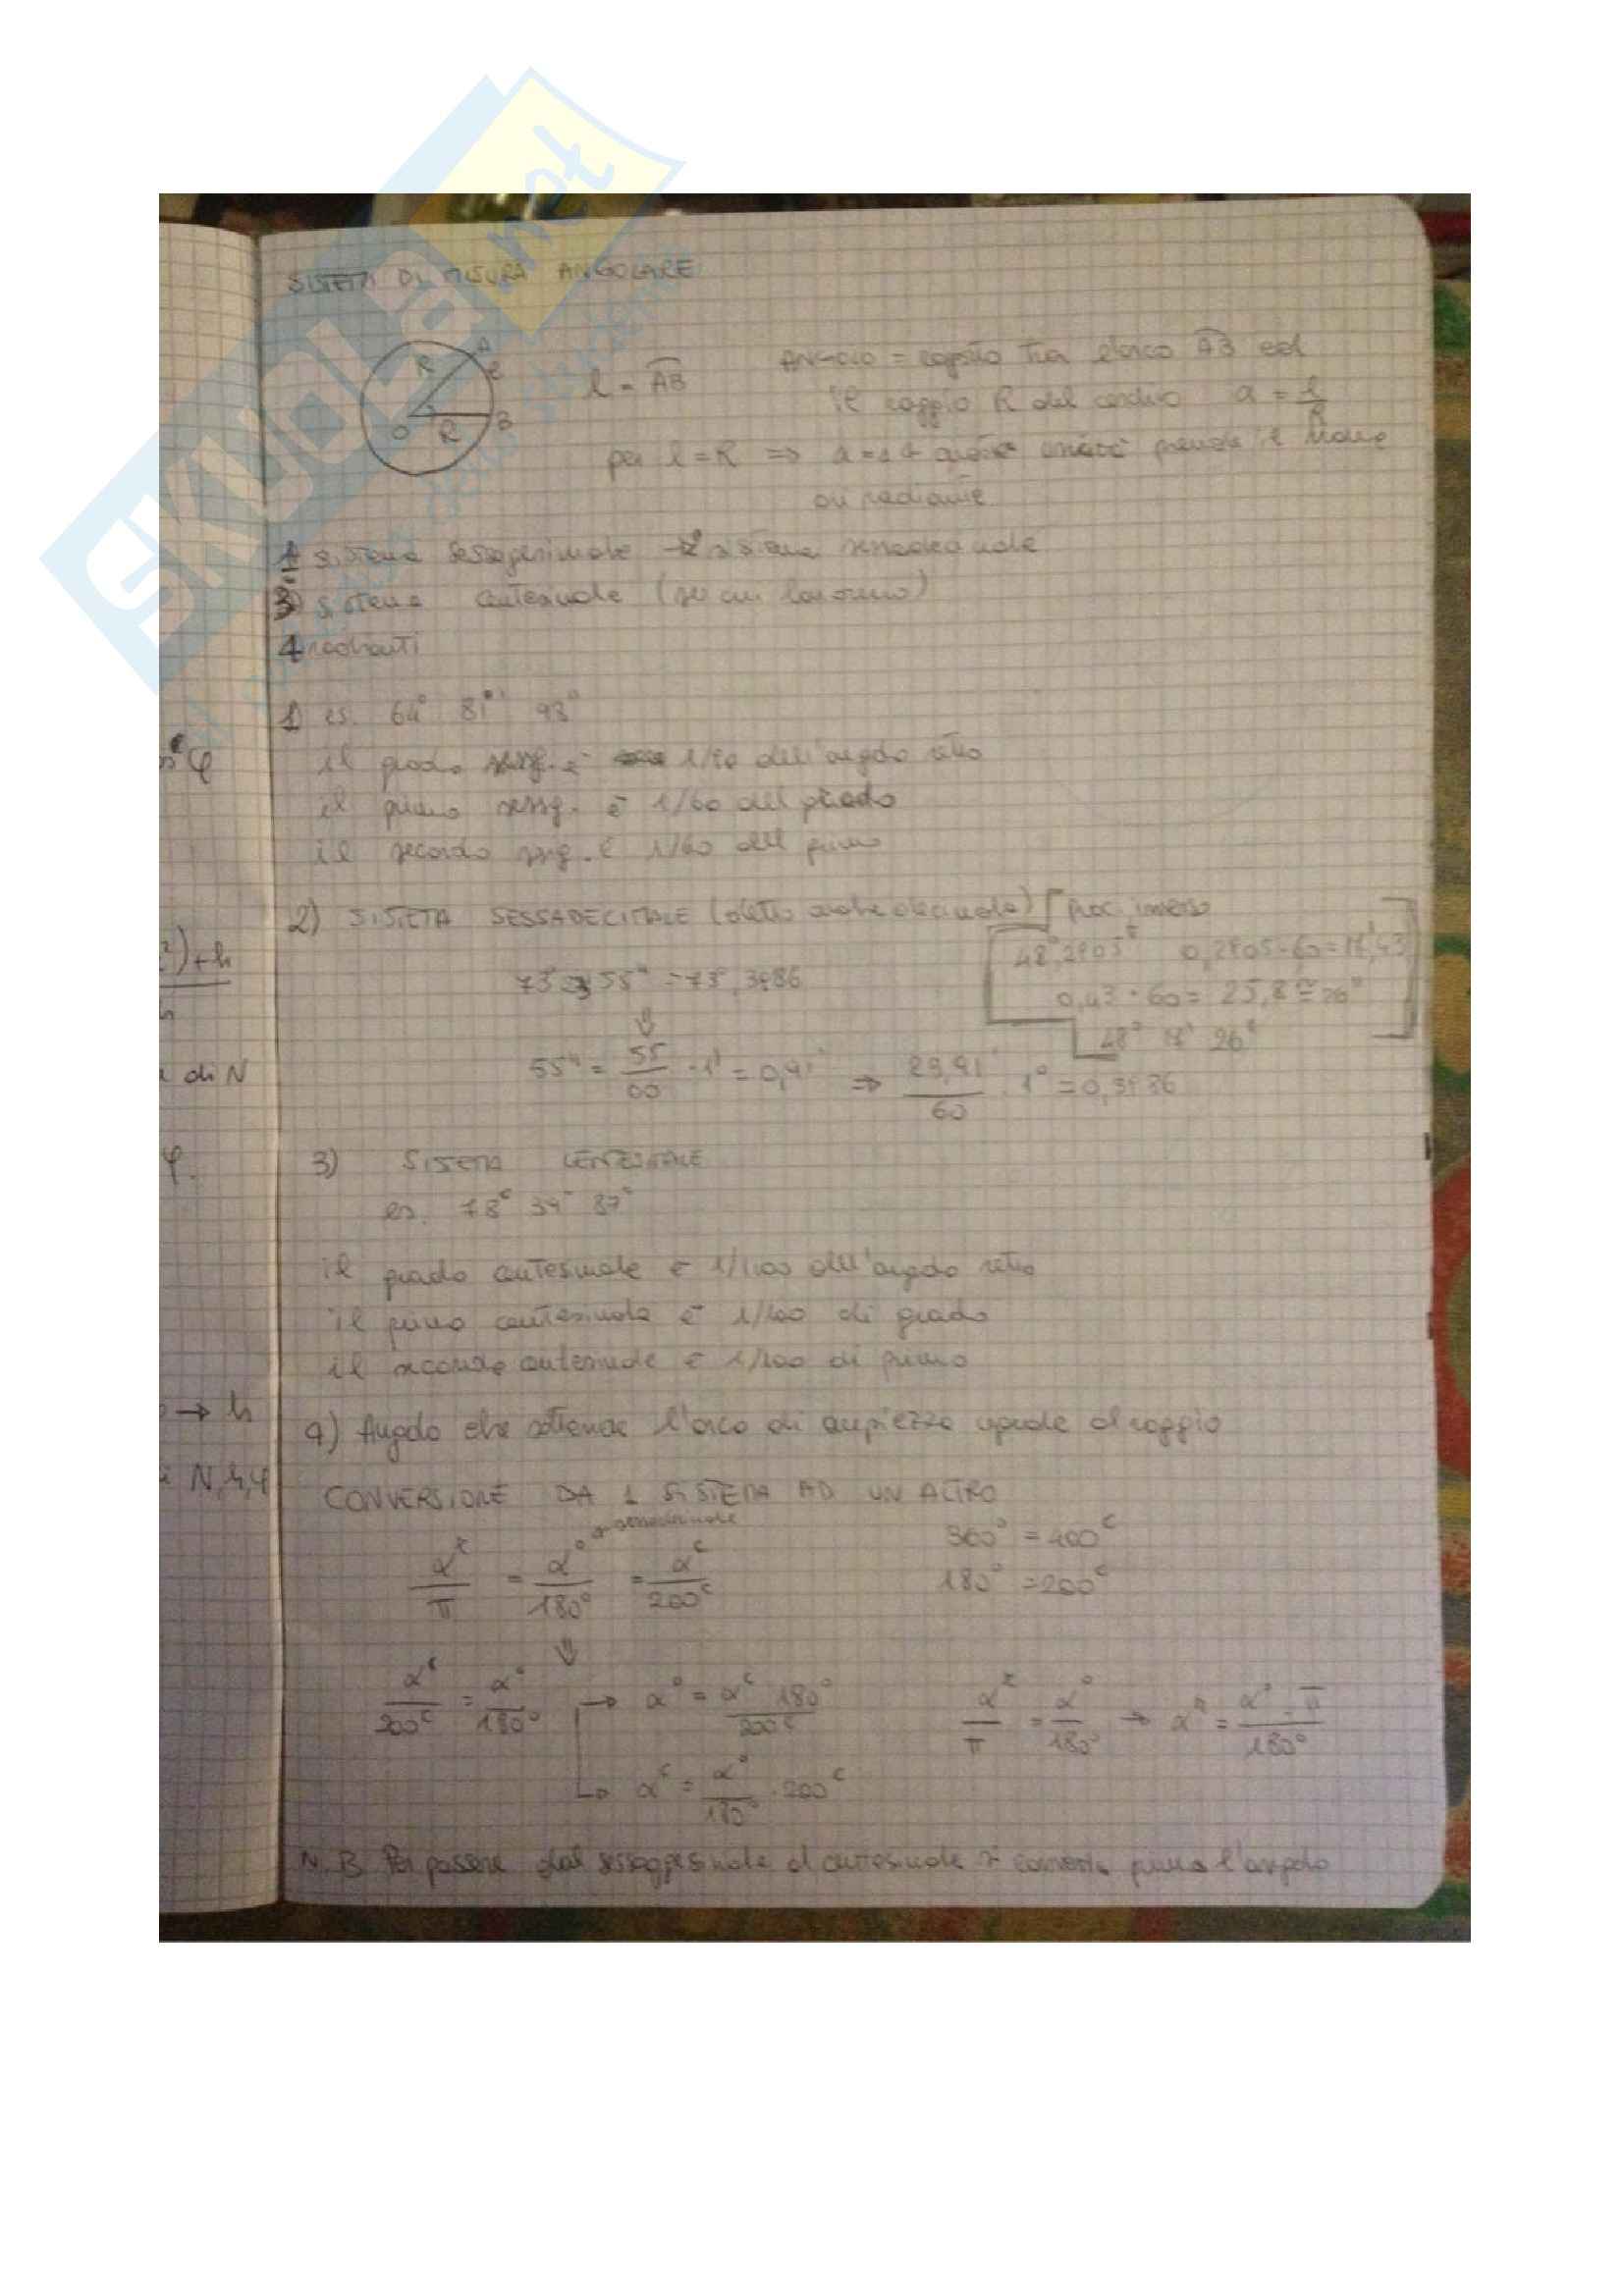 SISTEMI DI MISURA ANGOLARE
A
R
l
l = AB
ANGOLO = rapporto tra l'arco AB ed
O
R
B
il raggio R del cerchio α = l/R
per l = R ⇒ α = 1 prende il nome
di radiante
1 sistema sessagesimale 2 sistema sessadecimale
3) sistema centesimale (su cui lavoriamo)
4 radianti
1) es. 64° 81' 93"
il grado sessg. è 1/90 dell'angolo retto
il primo sessg. è 1/60 del grado
il secondo sessg. è 1/60 del primo
2) SISTEMA SESSADECIMALE (detto anche decimale) proc. inverso
48°,2905 0,2905·60 = 17',43
55" = 73°,3986
0,43 · 60 = 25,8 ≅ 26"
⇓
48° 17' 26"
55" = 55/60 · 1' = 0,91' ⇒ 23,91'/60 · 1° = 0,3986
3) SISTEMA CENTESIMALE
es. 78c 34- 87=
il grado centesimale è 1/100 dell'angolo retto
il primo centesimale è 1/100 di grado
il secondo centesimale è 1/100 di primo
4) Angolo che sottende l'arco di ampiezza uguale al raggio
CONVERSIONE DA 1 SISTEMA AD UN ALTRO
sessadecimale
α^r/π = α°/180° = α^c/200^c
360° = 400^c
180° = 200^c
⇓
α^c/200^c = α°/180° → α° = α^c 180°/200^c
α^r/π = α°/180° → α^r = α°·π/180°
→ α^c = α°/180° · 200^c
N.B. Per passare dal sessaggesimale al centesimale si converte prima l'angolo
n²φ
²)+h
di N
φ.
→ h
N,h,φ
SKUOLA.net